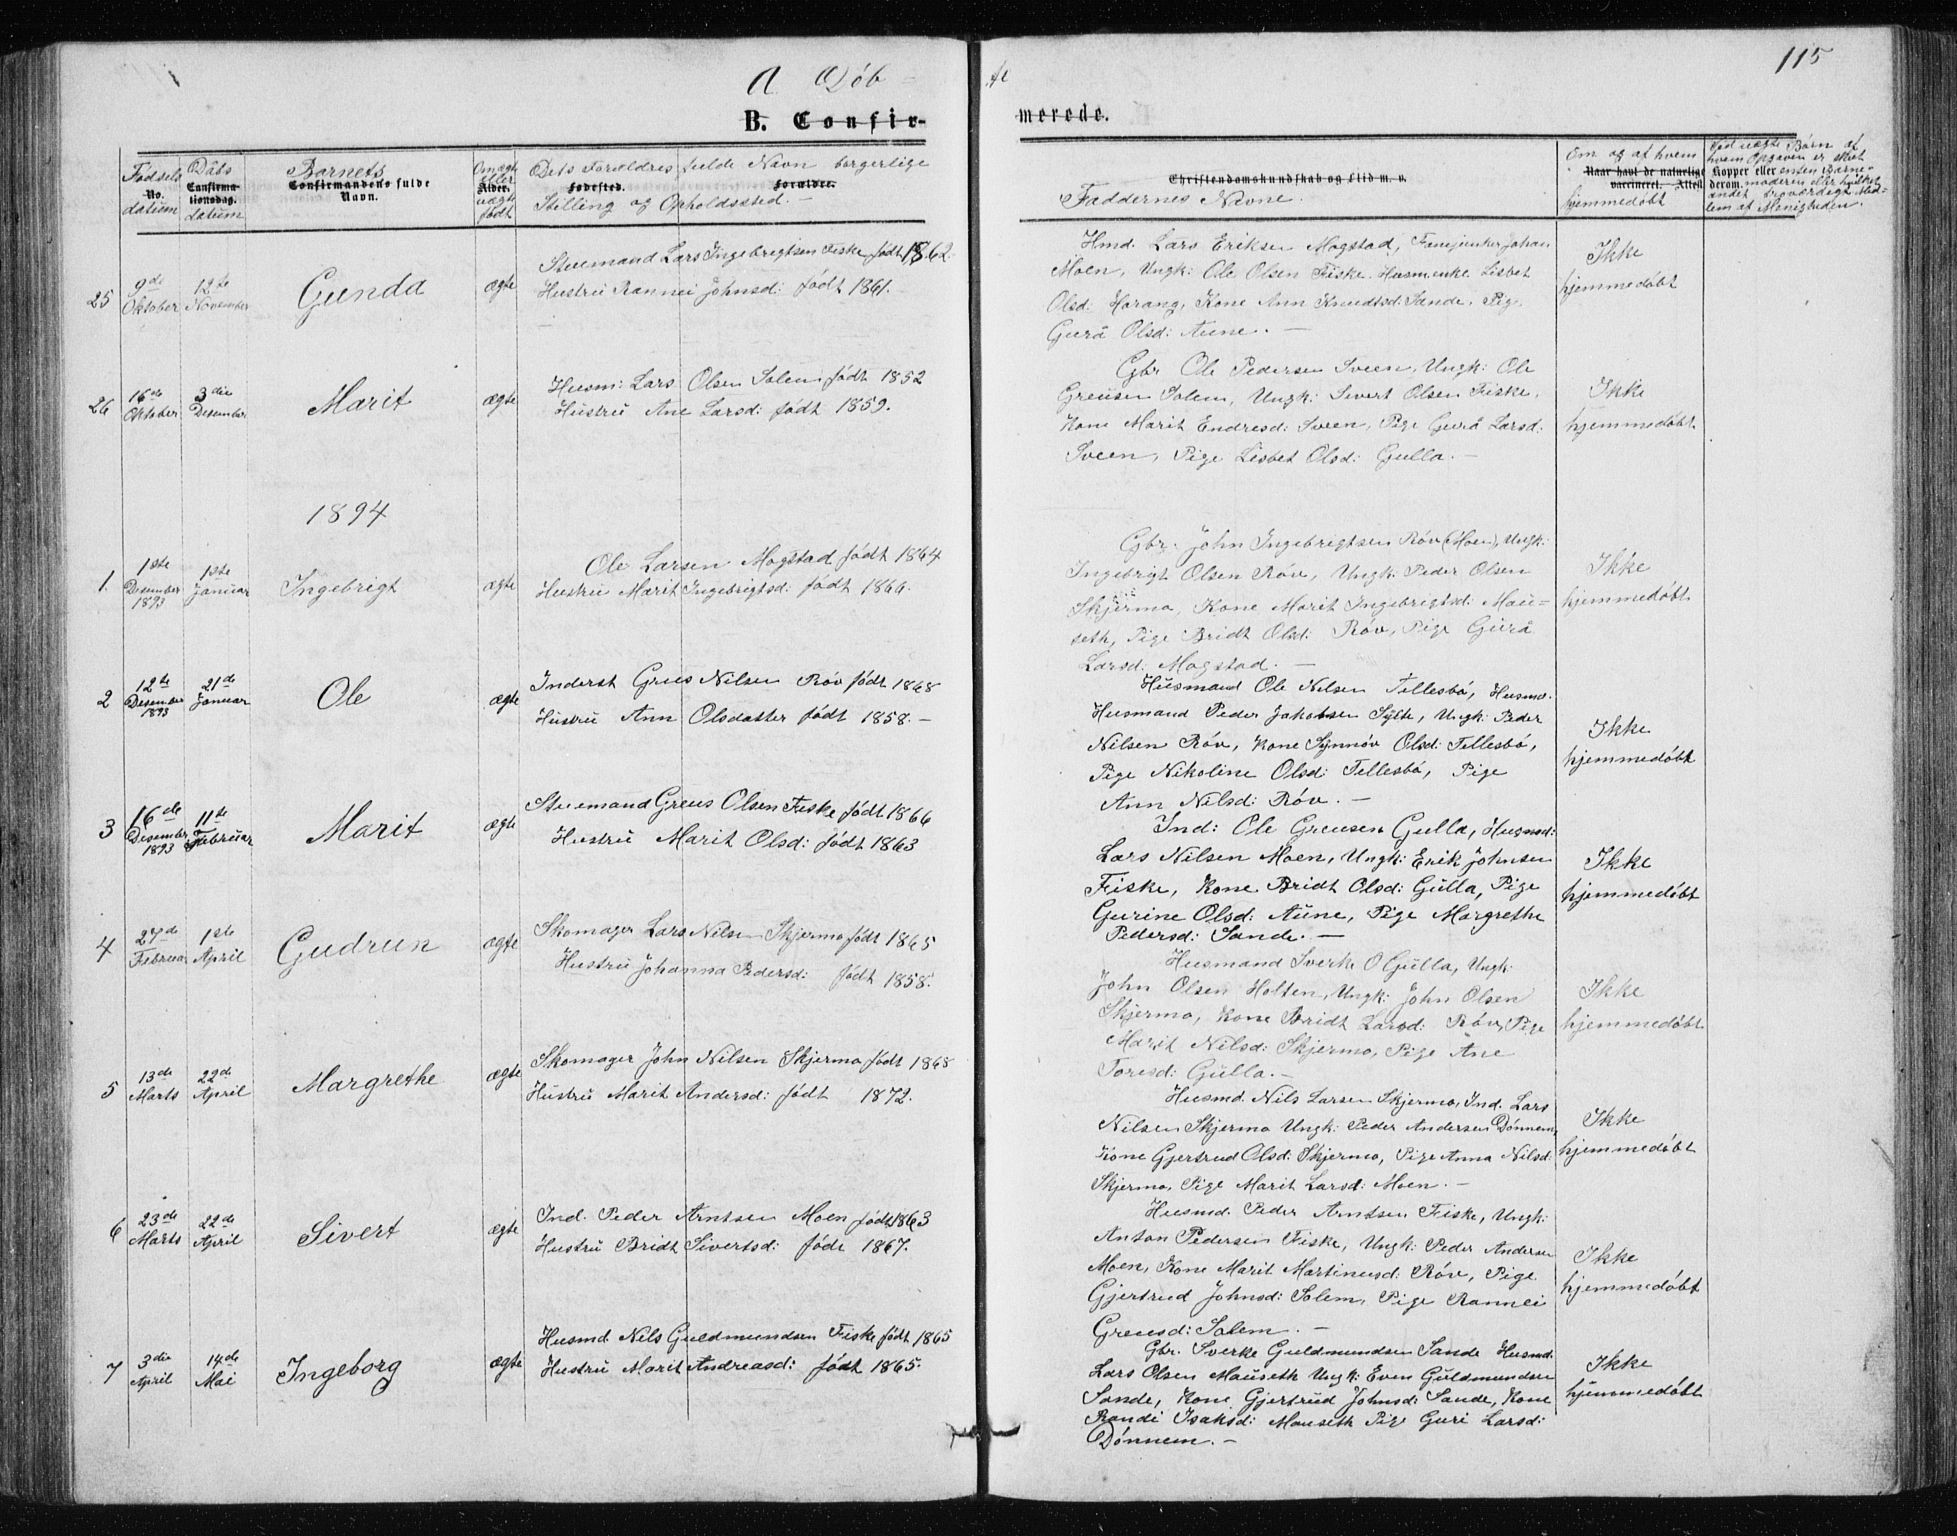 115
A Døb-
te
B. Confir-
merede.
Fødsels
No.
datum
Dåbs
Confirma-
tionsdag.
datum
Barnets
Confirmandens fulde
Navn.
Om ægte
eller
Alder.
uægte
født
Dets Forældres fulde Navn borgerlige
Fødested. Forældre.
Stilling og Opholdssted. —
Christendomskundskab og Flid m. v.
Faddernes Navne.
Om og af hvem
Naar havt de naturlige
vaccineret. Attest
hjemmedøbt
Ved uægte Børn af
hvem Opgaven er skeet
Kopper eller enten Barne-
derom. moderen eller hvilket
andet troværdigt Med-
lem af Menigheden.
25
9de
Oktober
12te
November
Gunda
ægte
Stuemand Lars Ingebrigtsen Fiske født 1862
Hustru Rannei Johnsd: født 1861.
Hmd. Lars Eriksen Mogstad, Fanejunker Johan
Moen, Ungk: Ole Olsen Fiske. Husmenke Lisbet
Olsd: Harang, Kone Ann Knudtsd: Sande, Pige
Gurå Olsd: Aune. —
Ikke
hjemmedøbt
26
16de
Oktober
3die
Desember
Marit
ægte
Husm: Lars Olsen Solem født 1852
Hustru Ane Larsd: født 1859.
Gbr Ole Pedersen Sveen, Ungk: Ole
Greusen Solem, Ungk: Sivert Olsen Fiske,
Kone Marit Endresd: Sveen, Pige Gurå Larsd:
Sveen, Pige Lisbet Olsd: Gulla. —
Ikke
hjemmedøbt
1894
1.
1ste
Desember
1893
1ste
Januar
Ingebrigt
ægte
Ole Larsen Mogstad født 1864
Hustru Marit Ingebrigtsd: født 1866.
Gbr. John Ingebrigtsen Røv (Moen), Ungk:
Ingebrigt Olsen Røv, Ungk: Peder Olsen
Skjermo, Kone Marit Ingebrigtsd: Mau=
seth, Pige Bridt Olsd: Røv, Pige Gurå
Larsd: Mogstad. —
Ikke
hjemmedøbt
2
12te
Desember
1893
21de
Januar
Ole
ægte
Inderst Greus Nilsen Røv født 1868
Hustru Ann Olsdatter født 1858. —
Husmand Ole Nilsen Tellesbø, Husmd.
Husmand Peder Jakobsen Sylte, Ungk: Peder
Nilsen Røv, Kone Synnøv Olsd: Tellesbø,
Pige Nikoline Olsd: Tellesbø, Pige
Ann Nilsd: Røv. —
Ikke
hjemmedøbt
3
16de
Desember
1893
11te
Februar
Marit
ægte
Stuemand Greus Olsen Fiske født 1866
Hustru Marit Olsd: født 1863
Ind: Ole Greusen Gulla, Husmd:
Lars Nilsen Moen, Ungk: Erik Johnsen
Fiske, Kone Bridt Olsd: Gulla, Pige
Gurine Olsd: Aune, Pige Margrethe
Pedersd: Sande. —
Ikke
hjemmedøbt
4
27de
Februar
1ste
April
Gudrun
ægte
Skomager Lars Nilsen Skjermo født 1865
Hustru Johanna Pedersd: født 1858.
Husmand Sverke O Gulla, Ungk:
John Olsen Holten, Ungk: John Olsen
Skjermo, Kone Bridt Larsd: Røv, Pige
Marit Nilsd: Skjermo, Pige Ane
Toresd: Gulla. —
Ikke
hjemmedøbt
5
13de
Marts
22de
April
Margrethe
ægte
Skomager John Nilsen Skjermo født 1868
Hustru Marit Andersd: født 1872.
Husmd. Nils Larsen Skjermo, Ind. Lars
Nilsen Skjermo Ungk: Peder Andersen Dønnem,
Kone Gjertrud Olsd: Skjermo, Pige Anna Nilsd:
Skjermo, Pige Marit Larsd: Moen. —
Ikke
hjemmedøbt
6
23de
Marts
22de
April
Sivert
ægte
Ind. Peder Arntsen Moen født 1863
Hustru Bridt Sivertsd: født 1867.
Husmd. Peder Arntsen Fiske, Ungk:
Anton Pedersen Fiske, Ungk: Peder Andersen
Moen, Kone Marit Martinusd: Røv, Pige
Gjertrud Johnsd: Solem, Pige Rannei
Greusd: Solem. —
Ikke
hjemmedøbt
7
3die
April
14de
Mai
Ingeborg
ægte
Husmd Nils Guldmundsen Fiske født 1865
Hustru Marit Andreasd: født 1865.
Gbr. Sverke Guldmundsen Sande Husmd.
Lars Olsen Mauseth Ungk: Even Guldmundsen
Sande, Kone Gjertrud Johnsd: Sande, Kone
Randi Isaksd: Mauseth Pige Guri Larsd:
Dønnem. —
Ikke
hjemmedøbt